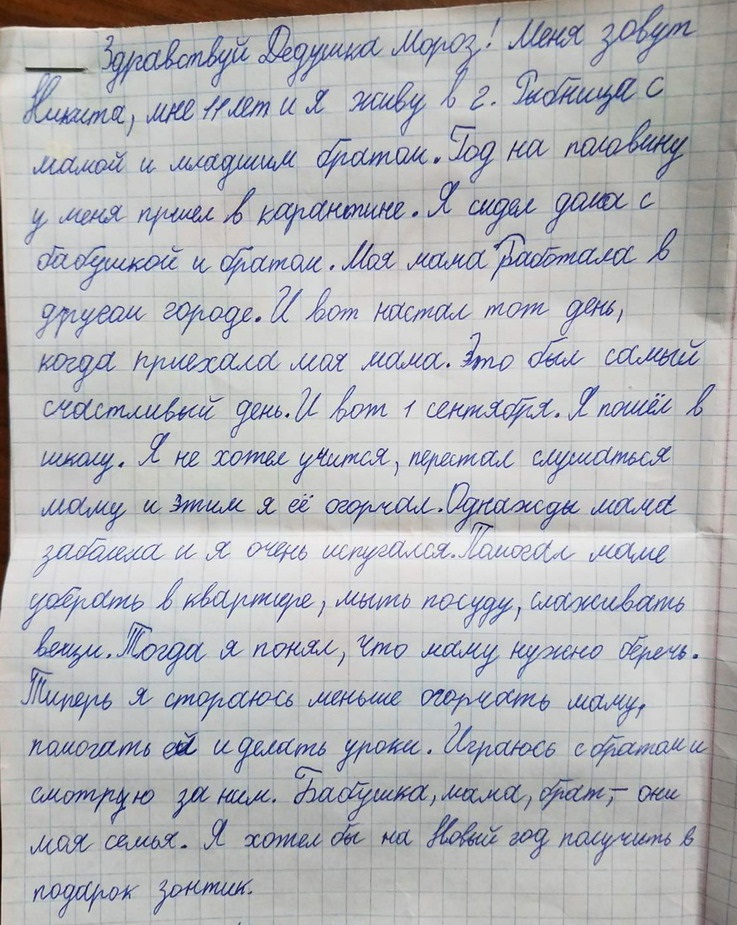 Здравствуй Дедушка Мороз! Меня зовут
Никита, мне 11 лет и я живу в г. Рыбница с
мамой и младшим братом. Год на половину
у меня прошел в карантине. Я сидел дома с
бабушкой и братом. Моя мама Работала в
другом городе. И вот настал тот день,
когда приехала моя мама. Это был самый
счастливый день. И вот 1 сентября. Я пошёл в
школу. Я не хотел учится, перестал слушаться
маму и этим я её огорчал. Однажды мама
заболела и я очень испугался. Помогал маме
убирать в квартире, мыть посуду, слаживать
вещи. Тогда я понял, что маму нужно беречь.
Типерь я стораюсь меньше огорчать маму,
помогать ей и делать уроки. Играюсь с братом и
смотрую за ним. Бабушка, мама, брат, – они
моя семья. Я хотел бы на Новый год получить в
подарок зонтик.